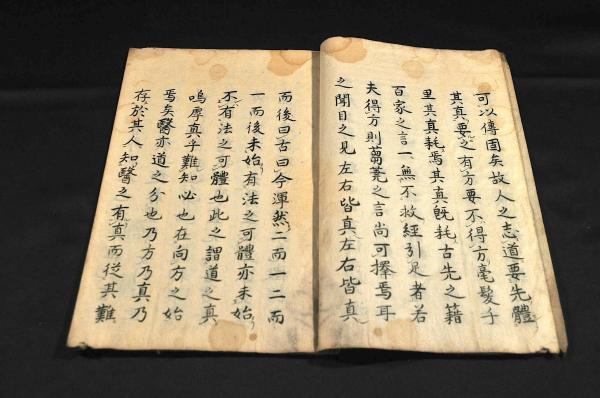 可以傳國矣故人之志道要先體
其真要之有方要不得方毫髮千
里其真耗焉其真既耗古先之籍
百家之言一無不救經引足者若
夫得方則蒭蕘之言尚可擇焉耳
之聞目之見左右皆真左右皆真
而後曰古曰今渾然二而一二而
一而後未始有法之可體亦未始
不有法之可體也此之謂道之真
嗚厚真乎難知必也在向方之始
焉矣醫亦道之分也乃方乃真乃
存於其人知醫之有真而從其難